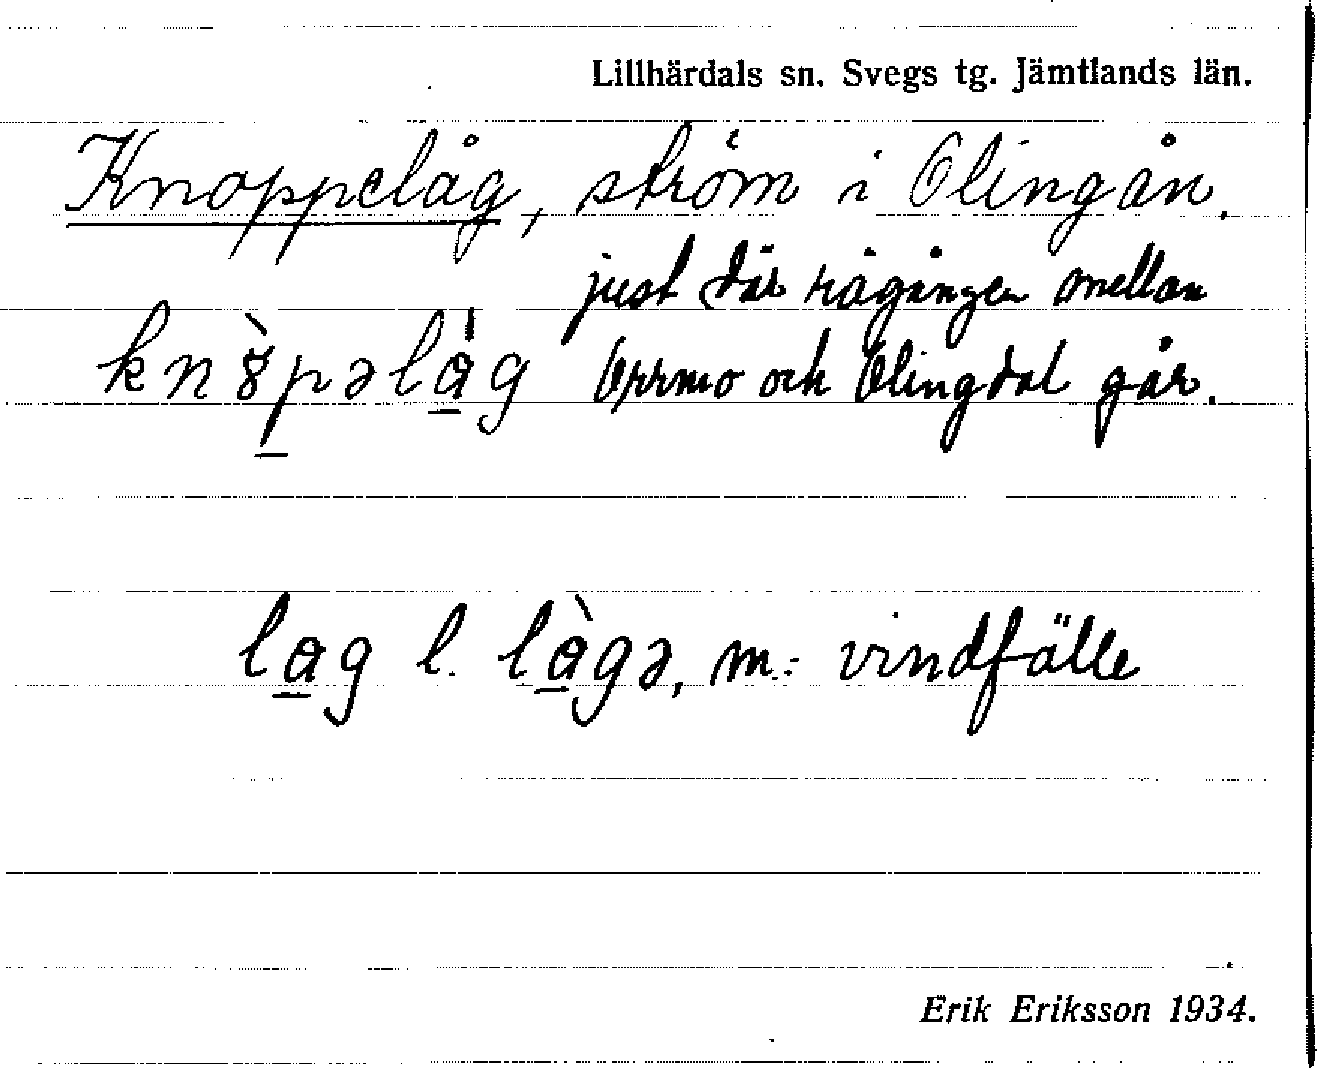 Lillhärdals sn. Svegs tg. Jämtlands län.
Knoppelåg, ström i Olingån.
just där rågången mellan
kn8̀pəla̠̍g Orrmo och Olingdal går.
la̠g l. là̠gə, m.: vindfälle
Erik Eriksson 1934.